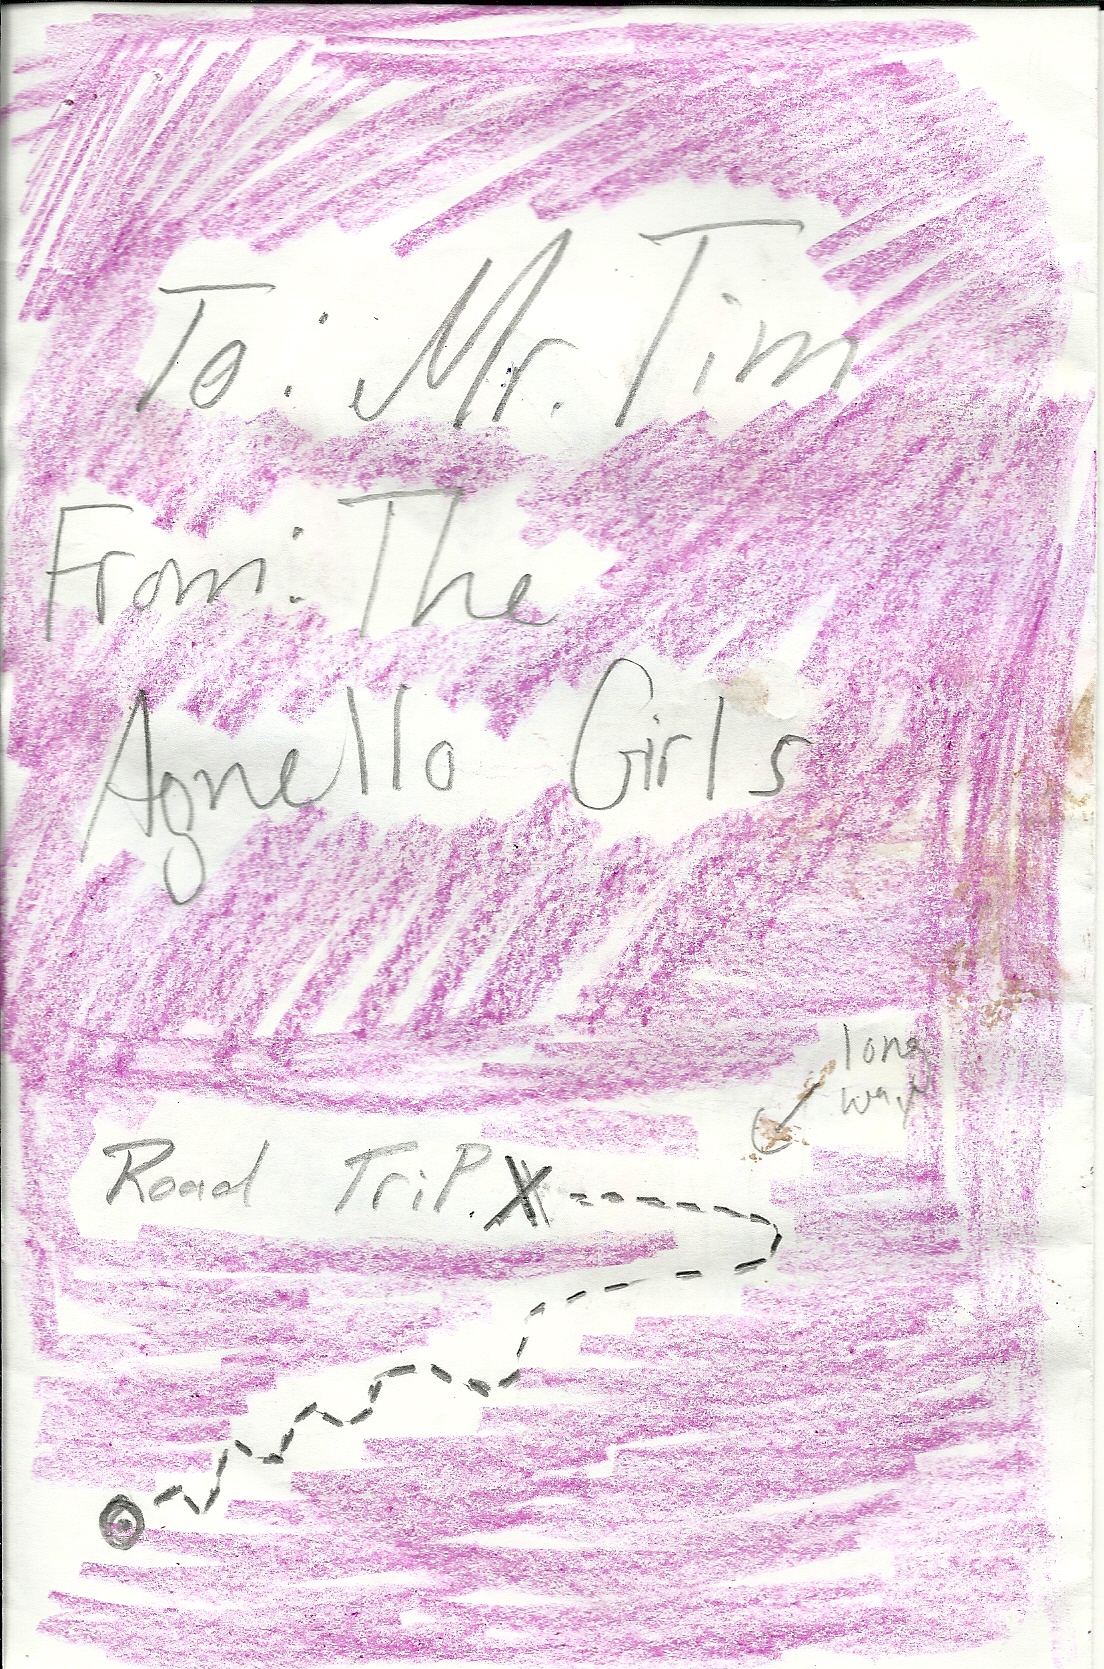 To: Mr. Tim
From: The
Agnello Girls
long
way
Road TriP.